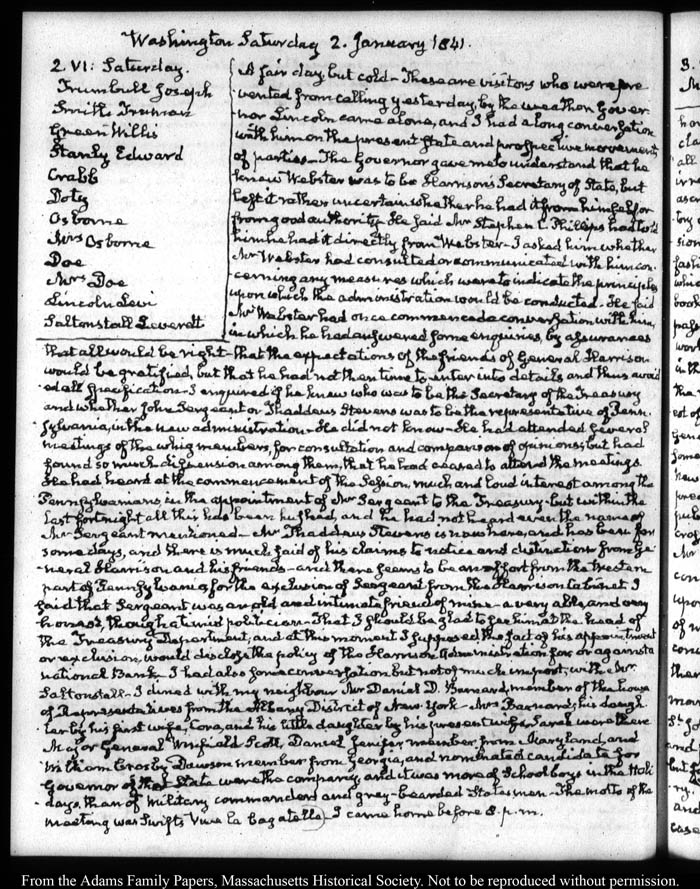 Washington Saturday 2. January 1841.
2. VI: Saturday.
Trumbull Joseph
Smith Truman
Green Willis
Stanly Edward
Crabb
Doty
Osborne
Mrs Osborne
Doe
Mrs Doe
Lincoln Levi
Saltonstall Leverett
A fair day, but cold- These are visitors who were pre
vented from calling yesterday, by the weather Gover
nor Lincoln came alone, and I had a long conversation
with him on the present state and prospective movements
of parties- The Governor gave me to understand that he
knew Webster was to be Harrison's Secretary of State, but
left it rather uncertain whether he had it from himself or
from good authority- He said Mr Stephen C. Philips had told
him he had it directly from Webster- I asked him whether
Mr Webster had consulted or communicated with him con-
cerning any measures which were to indicate the principles
upon which the administration would be conducted- He said
Mr Webster had once commenced a conversation with him,
in which he had answered some enquiries, by assurances
that all would be right- that the expectations of the friends of General Harrison
would be gratified, but that he had not then time to enter into details and thus avoid
ed all specification- I enquired if he knew who was to be the Secretary of the Treasury
and whether John Sergeant or Thaddeus Stevens was to be the representative of Penn-
sylvania, in the new administration- He did not know- He had attended several
meetings of the whig members, for consultation and comparison of opinions; but had
found so much dissension among them, that he had ceased to attend the meetings.
He had heard at the commencement of the Session, much and loud interest among the
Pennsylvanians in the appointment of Mr Sergeant to the Treasury- but within the
last fortnight all this has been hushed, and he had not heard even the name of
Mr Sergeant mentioned- Mr Thaddeus Stevens is now here, and has been for
some days, and there is much said of his claims to notice and distinction from Ge-
neral Harrison and his friends- and there seems to be an effort from the Western
part of Pennsylvania, for the exclusion of Sergeant from the Harrison Cabinet I
said that Sergeant was an old and intimate friend of mine- a very able, and very
honest, though a timid politician- That I should be glad to see him at the head of
the Treasury Department, and at this moment I supposed the fact of his appointment
or exclusion, would disclose the policy of the Harrison Administration for or against a
national Bank- I had also some conversation but not of much import, with Mr.
Saltonstall- I dined with my neighbour Mr Daniel D. Barnard, member of the house
of Representatives from the Albany District of New-York- Mrs Barnard, his daugh-
ter by his first wife, Cora, and his little daughter by his present wife, Sarah were there
Major General Winfield Scott, Daniel Jenifer, member from Maryland, and
William Crosby Dawson member from Georgia, and nominated candidate for
Governor of that State were the company, and it was more of School boys in the Holi
days, than of military commanders and grey-bearded Statesmen- The motto of the
meeting was Swifts Vive la bagatelle- I came home before 8. p.m.
From the Adams Family Papers, Massachusetts Historical Society. Not to be reproduced without permission.